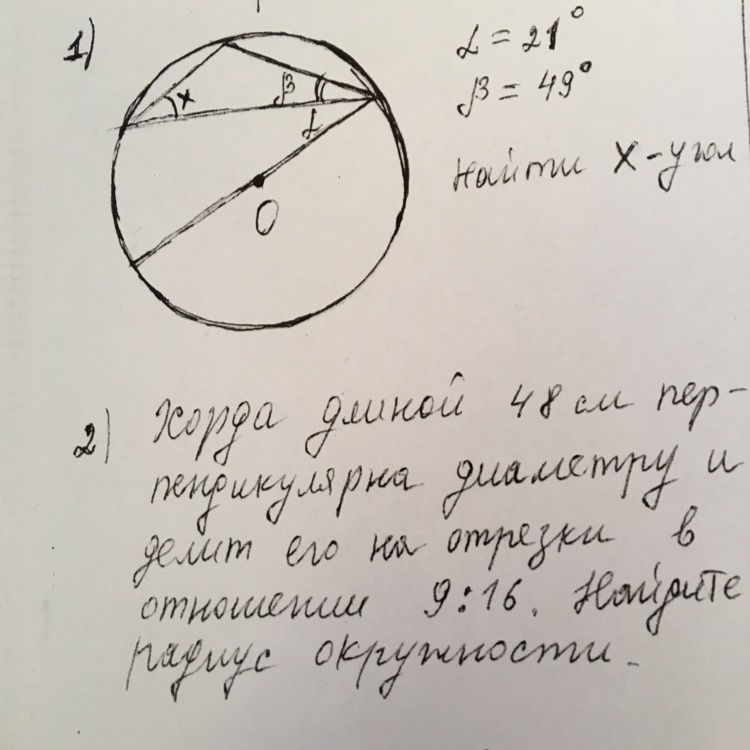 1)
α = 21°
β = 49°
Найти x-угол
x
β
α
O
2) Хорда длиной 48 см пер-
пендикулярна диаметру и
делит его на отрезки в
отношении 9:16. Найдите
радиус окружности.